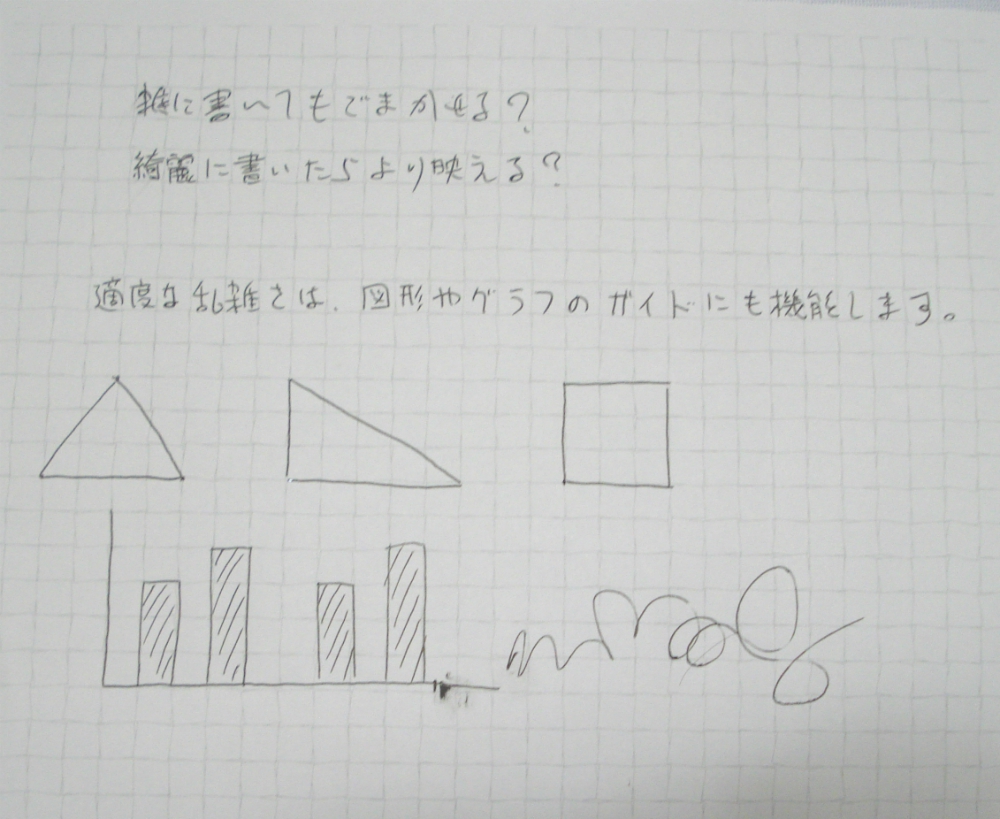 雑に書いてもごまかせる?
綺麗に書いたらより映える?
適度な乱雑さは、図形やグラフのガイドにも機能します。